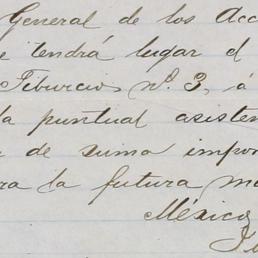 General de los Acc
e tendrá lugar el
Tiburcio nº. 3, á
la puntual asisten
de suma impor
ra la futura ma
México